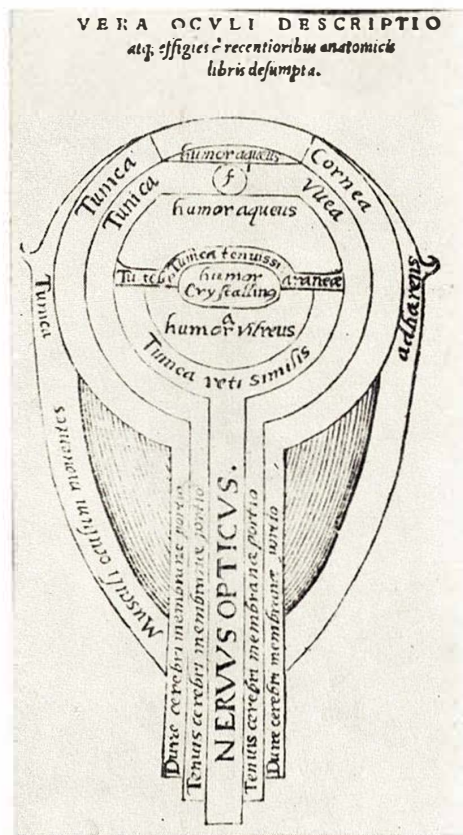 VERA OCVLI DESCRIPTIO
atq; effigies è recentioribus anatomicis
libris desumpta.
humor aqueus
Tunica Cornea
f
Tunica Vuea
humor aqueus
Tunica tenuissi
araneæ
humor
Crystallino
a
humor vitreus
Tunica reti similis
Tunica adhærens
Musculi oculum mouentes
Duræ cerebri membranæ portio
Tenuis cerebri membranæ portio
NERVVS OPTICVS.
Tenuis cerebri membranæ portio
Duræ cerebri membranæ portio